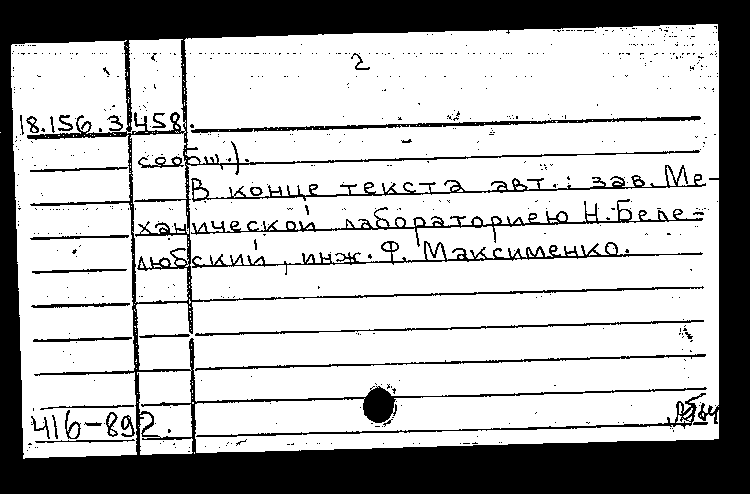 2
18.156.3.458.
сообщ.).
В конце текста авт.: зав. Ме-
ханической лабораториею Н. Беле-
любский, инж. Ф. Максименко.
416-892.